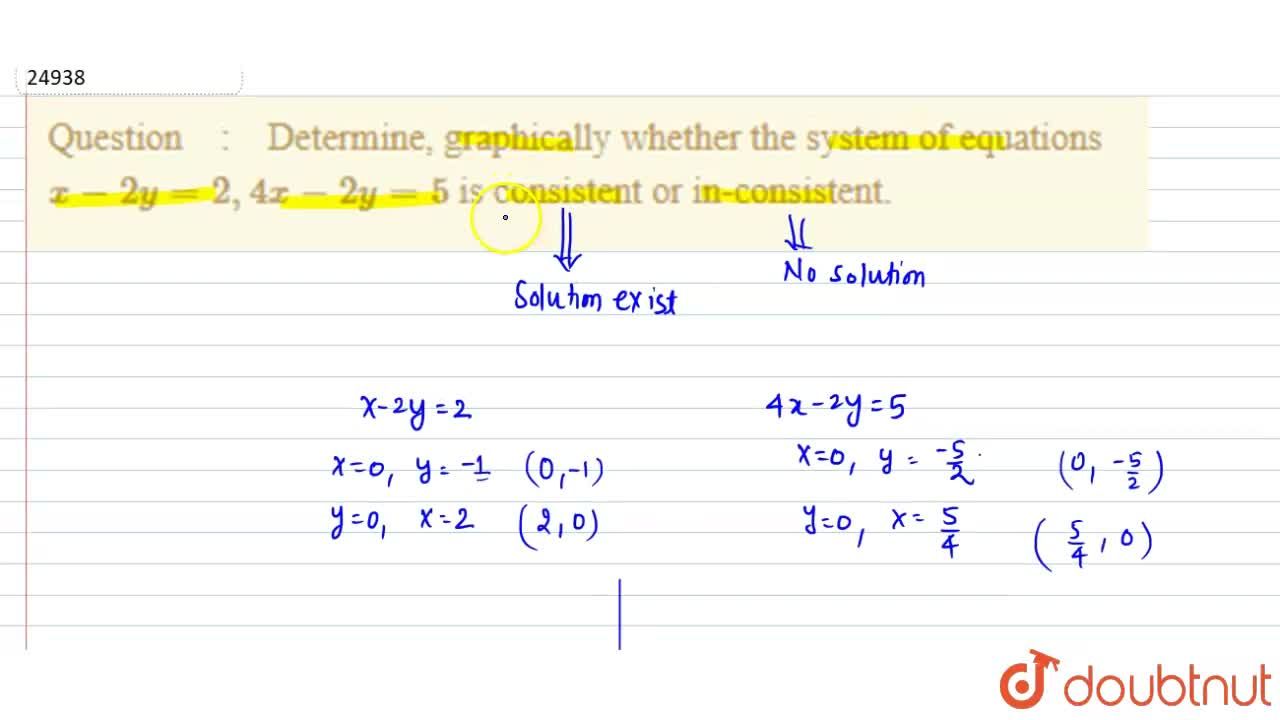 24938
Question : Determine, graphically whether the system of equations
x − 2y = 2, 4x − 2y = 5 is consistent or in-consistent.
Solution exist
No solution
x-2y=2
x=0, y=-1 (0,-1)
y=0, x=2 (2,0)
4x-2y=5
x=0, y=-5/2 (0,-5/2)
y=0, x=5/4 (5/4,0)
doubtnut